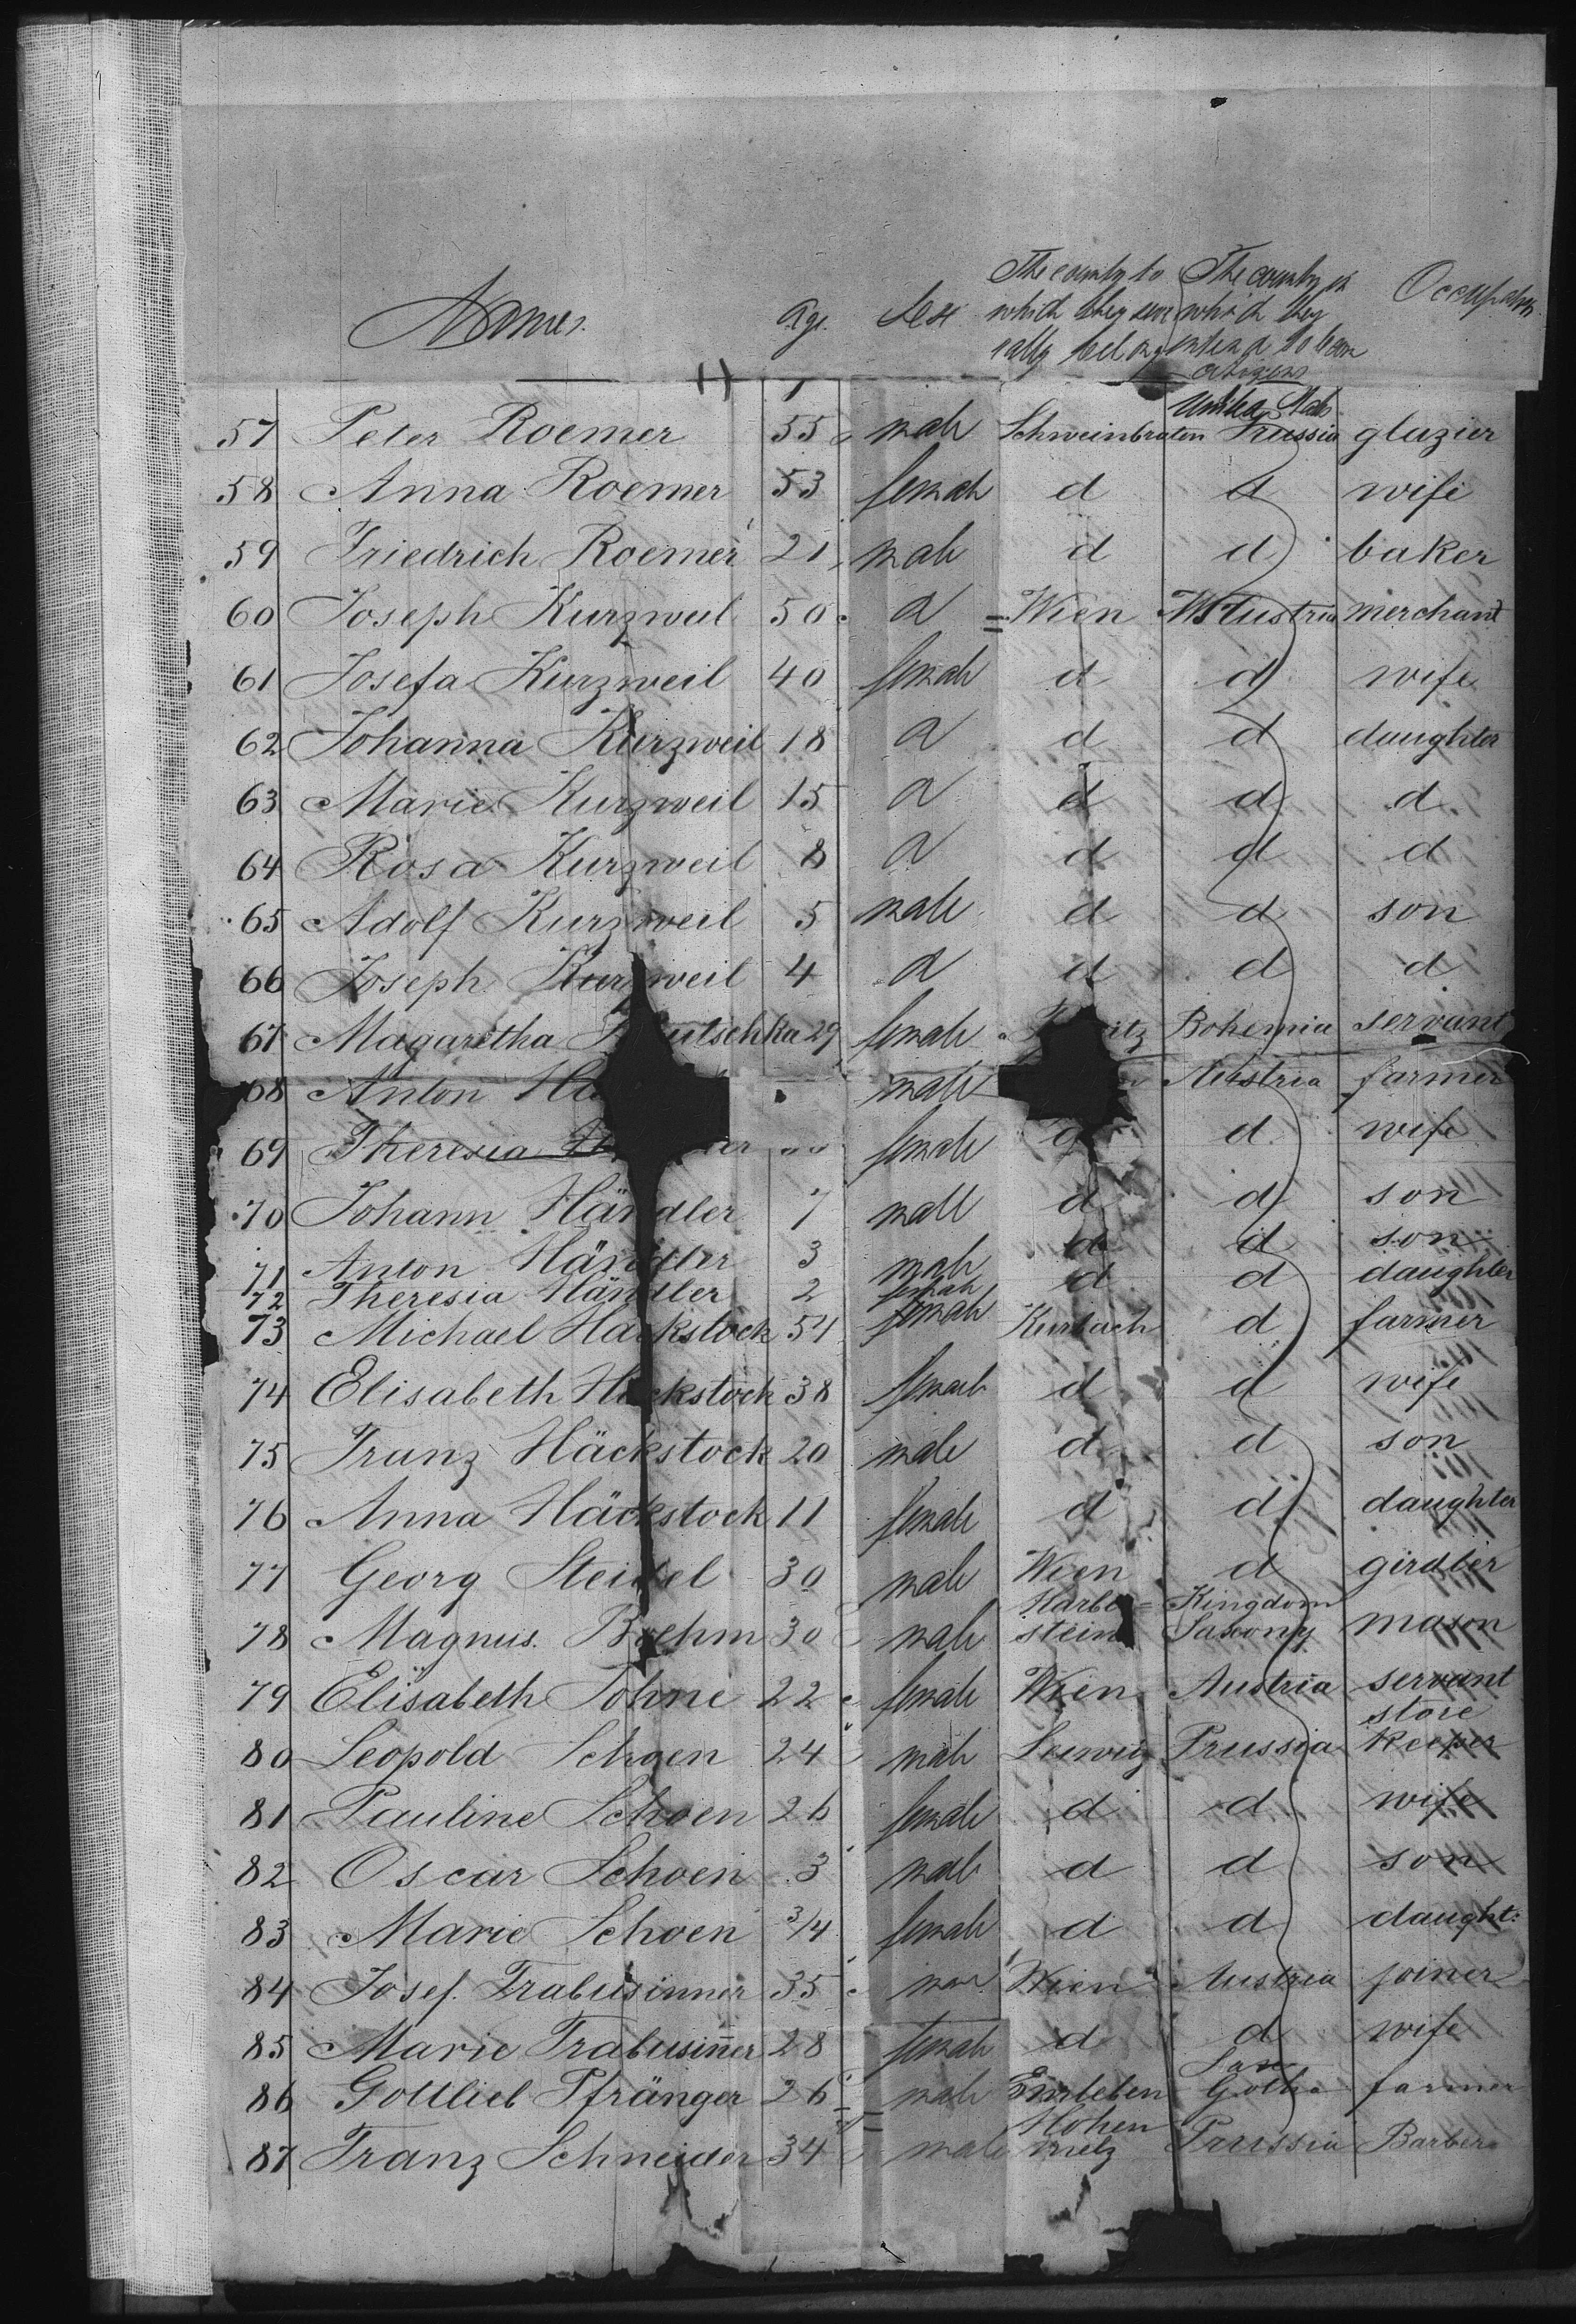 Names. Age. Sex The country to which they seve rally belong The country in which they intend to become citizens Occupation
United States
57 Peter Roemer 55 male Schweinbraten Prussia glazier
58 Anna Roemer 53 female d d wife
59 Friedrich Roemer 21 male d d baker
60 Joseph Kurzweil 50 d Wien Austria merchant
61 Josefa Kurzweil 40 female d d wife
62 Johanna Kurzweil 18 d d d daughter
63 Marie Kurzweil 15 d d d d
64 Rosa Kurzweil 8 d d d d
65 Adolf Kurzweil 5 male d d son
66 Joseph Kurzweil 4 d d d d
67 Magaretha utschka 29 female itz Bohemia servant
68 Anton Ha male Austria farmer
69 Theresia H er female d d wife
70 Johann Händler 7 male d d son
71 Anton Händler 3 male d d son
72 Theresia Händler 2 female d d daughter
73 Michael Hackstock 54 female Kurbach d farmer
74 Elisabeth Hackstock 38 female d d wife
75 Franz Häckstock 20 male d d son
76 Anna Häckstock 11 female d d daughter
77 Georg Steidel 30 male Wien d girdler
78 Magnus. Boehm 30 male stein Kingdom Saxony mason
79 Elisabeth Tohne 22 female Wien Austria servant
80 Leopold Schoen 24 male Prussia store keeper
81 Pauline Schoen 26 female d d wife
82 Oscar Schoen 3 male d d son
83 Marie Schoen 3/4 female d d daught:
84 Josef. Trabusinner 35 male Wien Austria joiner
85 Marie Trabusiñer 28 female d d wife
86 Gottlieb Pfränger 26 male Emleben Saxe Gotha farmer
87 Franz Schneider 34 male Hohen Prussia Barber